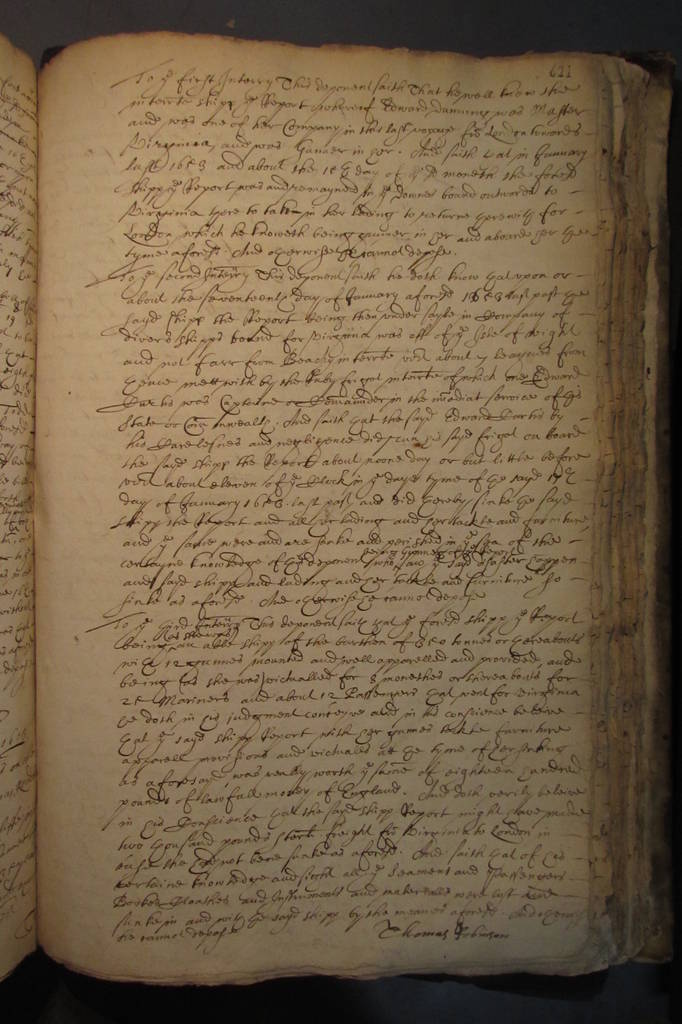 621
To ye first Interry This deponent saith That he well knew the
interrte shipp ye Report whereof Edward Danning was Master
and was one of her Company in this last voyage for London towards
Virginia, and was Gunner in her. And saith that in January
last 1653 and about the day of ye moneth the foresd
shipp ye Report was and remayned in ye Downes bound outwards to
Virginia there to take in her lading to returne therewith for
London which he knoweth being gunner in her and aboard her the
tyme aforesd. And otherwise he cannot depose.
To ye second Interry This deponent saith he doth know that upon or
about the seventeenth day of January aforesd 1653 last past the
sayd shipp the Report being then under sayle in Company of
divers shipps bound for Virginia was off of ye Isle of Wight
and not farr from Beachy interrte vizt about 7 leagues from
thence mett with by the Ruby frigot interrte of which one Edward
Curtis was Captaine or Comander in the imediat service of this
State or Comonwealth. And saith that the sayd Edward Curtis by
his Carelesnes and negligence did run ye sayd frigot on board
the sayd shipp the Report about noone day or but little before
vizt about eleven of ye Clock in ye day tyme of the sayd 17th
day of January 1653 last past and did thereby sinke the sayd
shipp the Report and all her lading and her tackle and furniture
and ye same were and are sunke and perished in ye Sea of the
certayne knowledge of this deponent being gunner of the Report who saw ye sayd disaster happen
and sayd shipp and lading and her tackle and furniture so
sunke as aforesd. And otherwise he cannot depose
To ye third Interry This deponent saith that ye foresd shipp ye Report
being (as she was) an able shipp of the burthen of 350 tonnes or thereabouts
with 12 gunnes mounted and well apparelled and provided, and
being (as she was) victualled for 8 monethes or thereabouts for
25 Mariners and about 12 Passengers that went for Virginia
he doth in his judgment conceyve and in his conscience beleeve
that ye sayd shipp Report with her gunnes tackle furniture
apparell provisions and victuals at the tyme of her sinking
as aforesayd was really worth ye summe of eighteen hundred
pounds of lawfull money of England. And doth verily beleeve
in his Conscience that the sayd shipp Report might have made
two thousand pounds sterl freight from Virginia to London in
case she had not bene sunke as aforesd. And saith that of his
certaine knowledge and sight all ye Seamens and Passengers
Bookes Cloathes and Instruments and materialls were lost and
sunke in and with the sayd shipp by the meanes aforesd. And otherwise
he cannot depose
Thomas Robinson